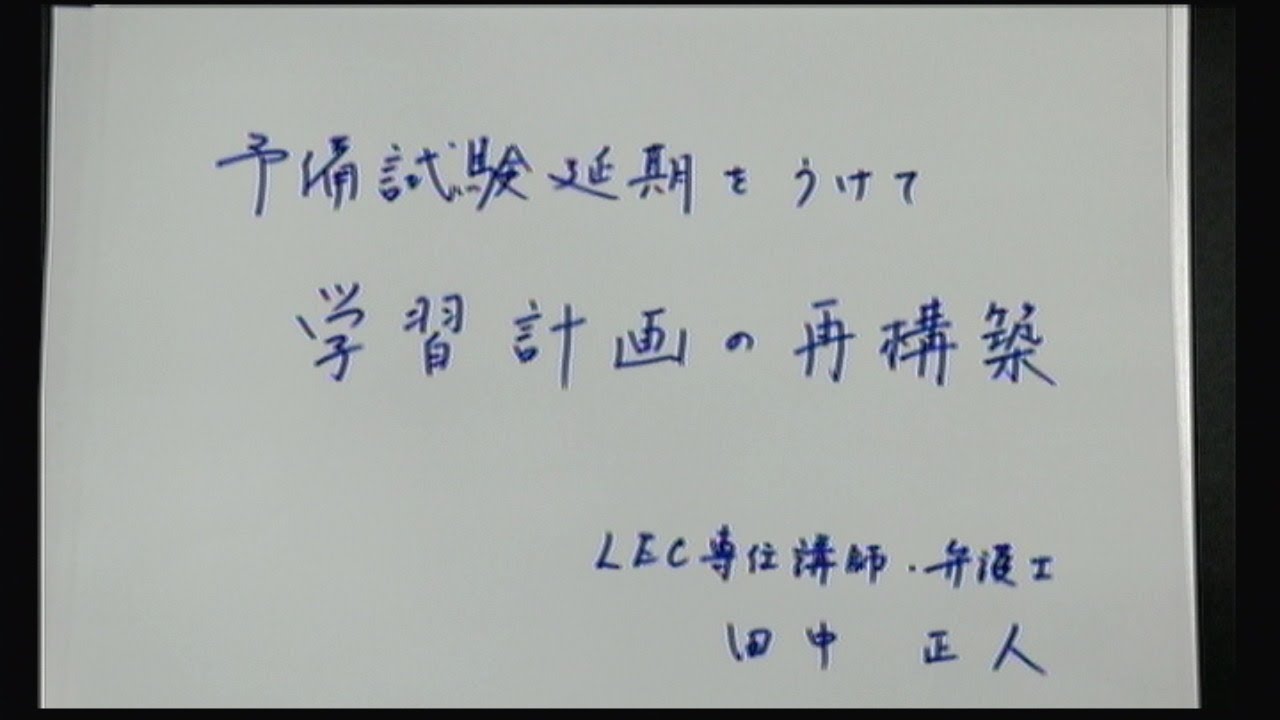 予備試験延期をうけて
学習計画の再構築
LEC専任講師・弁護士
田中 正人